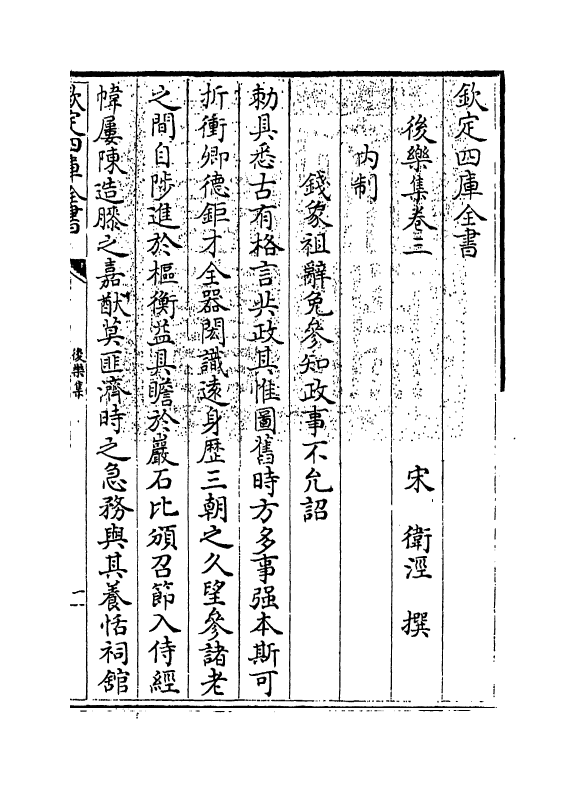 欽定四庫全書
後樂集卷三
宋 衛涇 撰
内制
錢象祖辭免參知政事不允詔
勅具悉古有格言共政其惟圖舊時方多事强本斯可
折衝卿德鉅才全器閎識逺身歴三朝之久望參諸老
之間自陟進於樞衡益具瞻於巖石比頒召節入侍經
幃屢陳造膝之嘉猷莫匪濟時之急務與其養恬祠舘
欽定四庫全書
後樂集
一